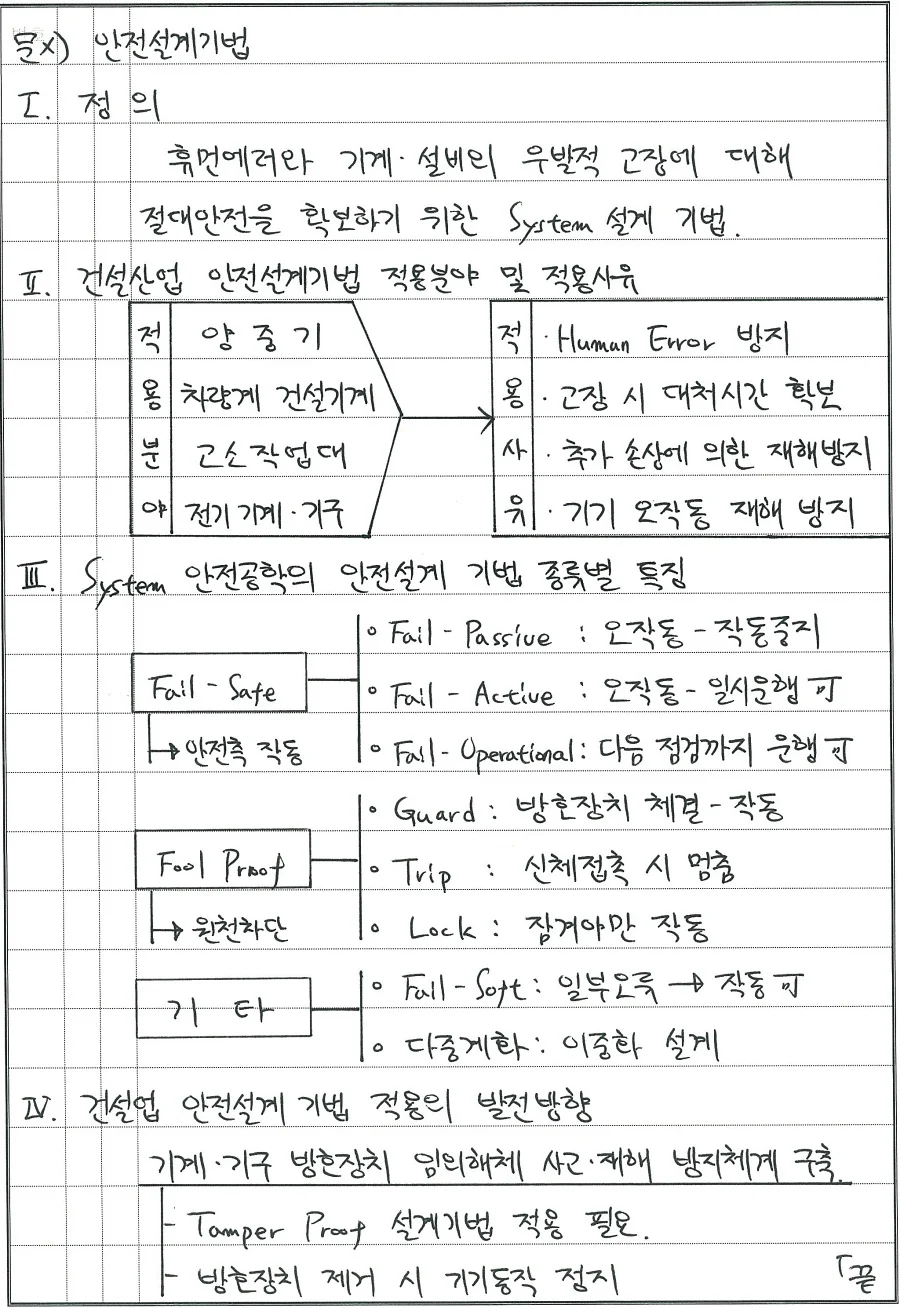 문x) 안전설계기법
I. 정 의
휴먼에러와 기계·설비의 우발적 고장에 대해
절대안전을 확보하기 위한 System 설계 기법.
II. 건설산업 안전설계기법 적용분야 및 적용사유
적 양 중 기 적 · Human Error 방지
용 차량계 건설기계 용 · 고장 시 대처시간 확보
분 고소작업대 사 · 추가 손상에 의한 재해방지
야 전기기계·기구 유 · 기기 오작동 재해 방지
III. System 안전공학의 안전설계 기법 종류별 특징
Fail-Safe
→ 안전측 작동
∘ Fail-Passive : 오작동-작동중지
∘ Fail-Active : 오작동-일시운행 可
∘ Fail-Operational: 다음 점검까지 운행 可
Fool Proof
→ 원천차단
∘ Guard : 방호장치 체결-작동
∘ Trip : 신체접촉 시 멈춤
∘ Lock : 잠겨야만 작동
기 타
∘ Fail-Soft : 일부오류 → 작동 可
∘ 다중계화 : 이중화 설계
IV. 건설업 안전설계 기법 적용의 발전방향
기계·기구 방호장치 임의해체 사고·재해 방지체계 구축.
- Tamper Proof 설계기법 적용 필요.
- 방호장치 제거 시 기기동작 정지
「끝